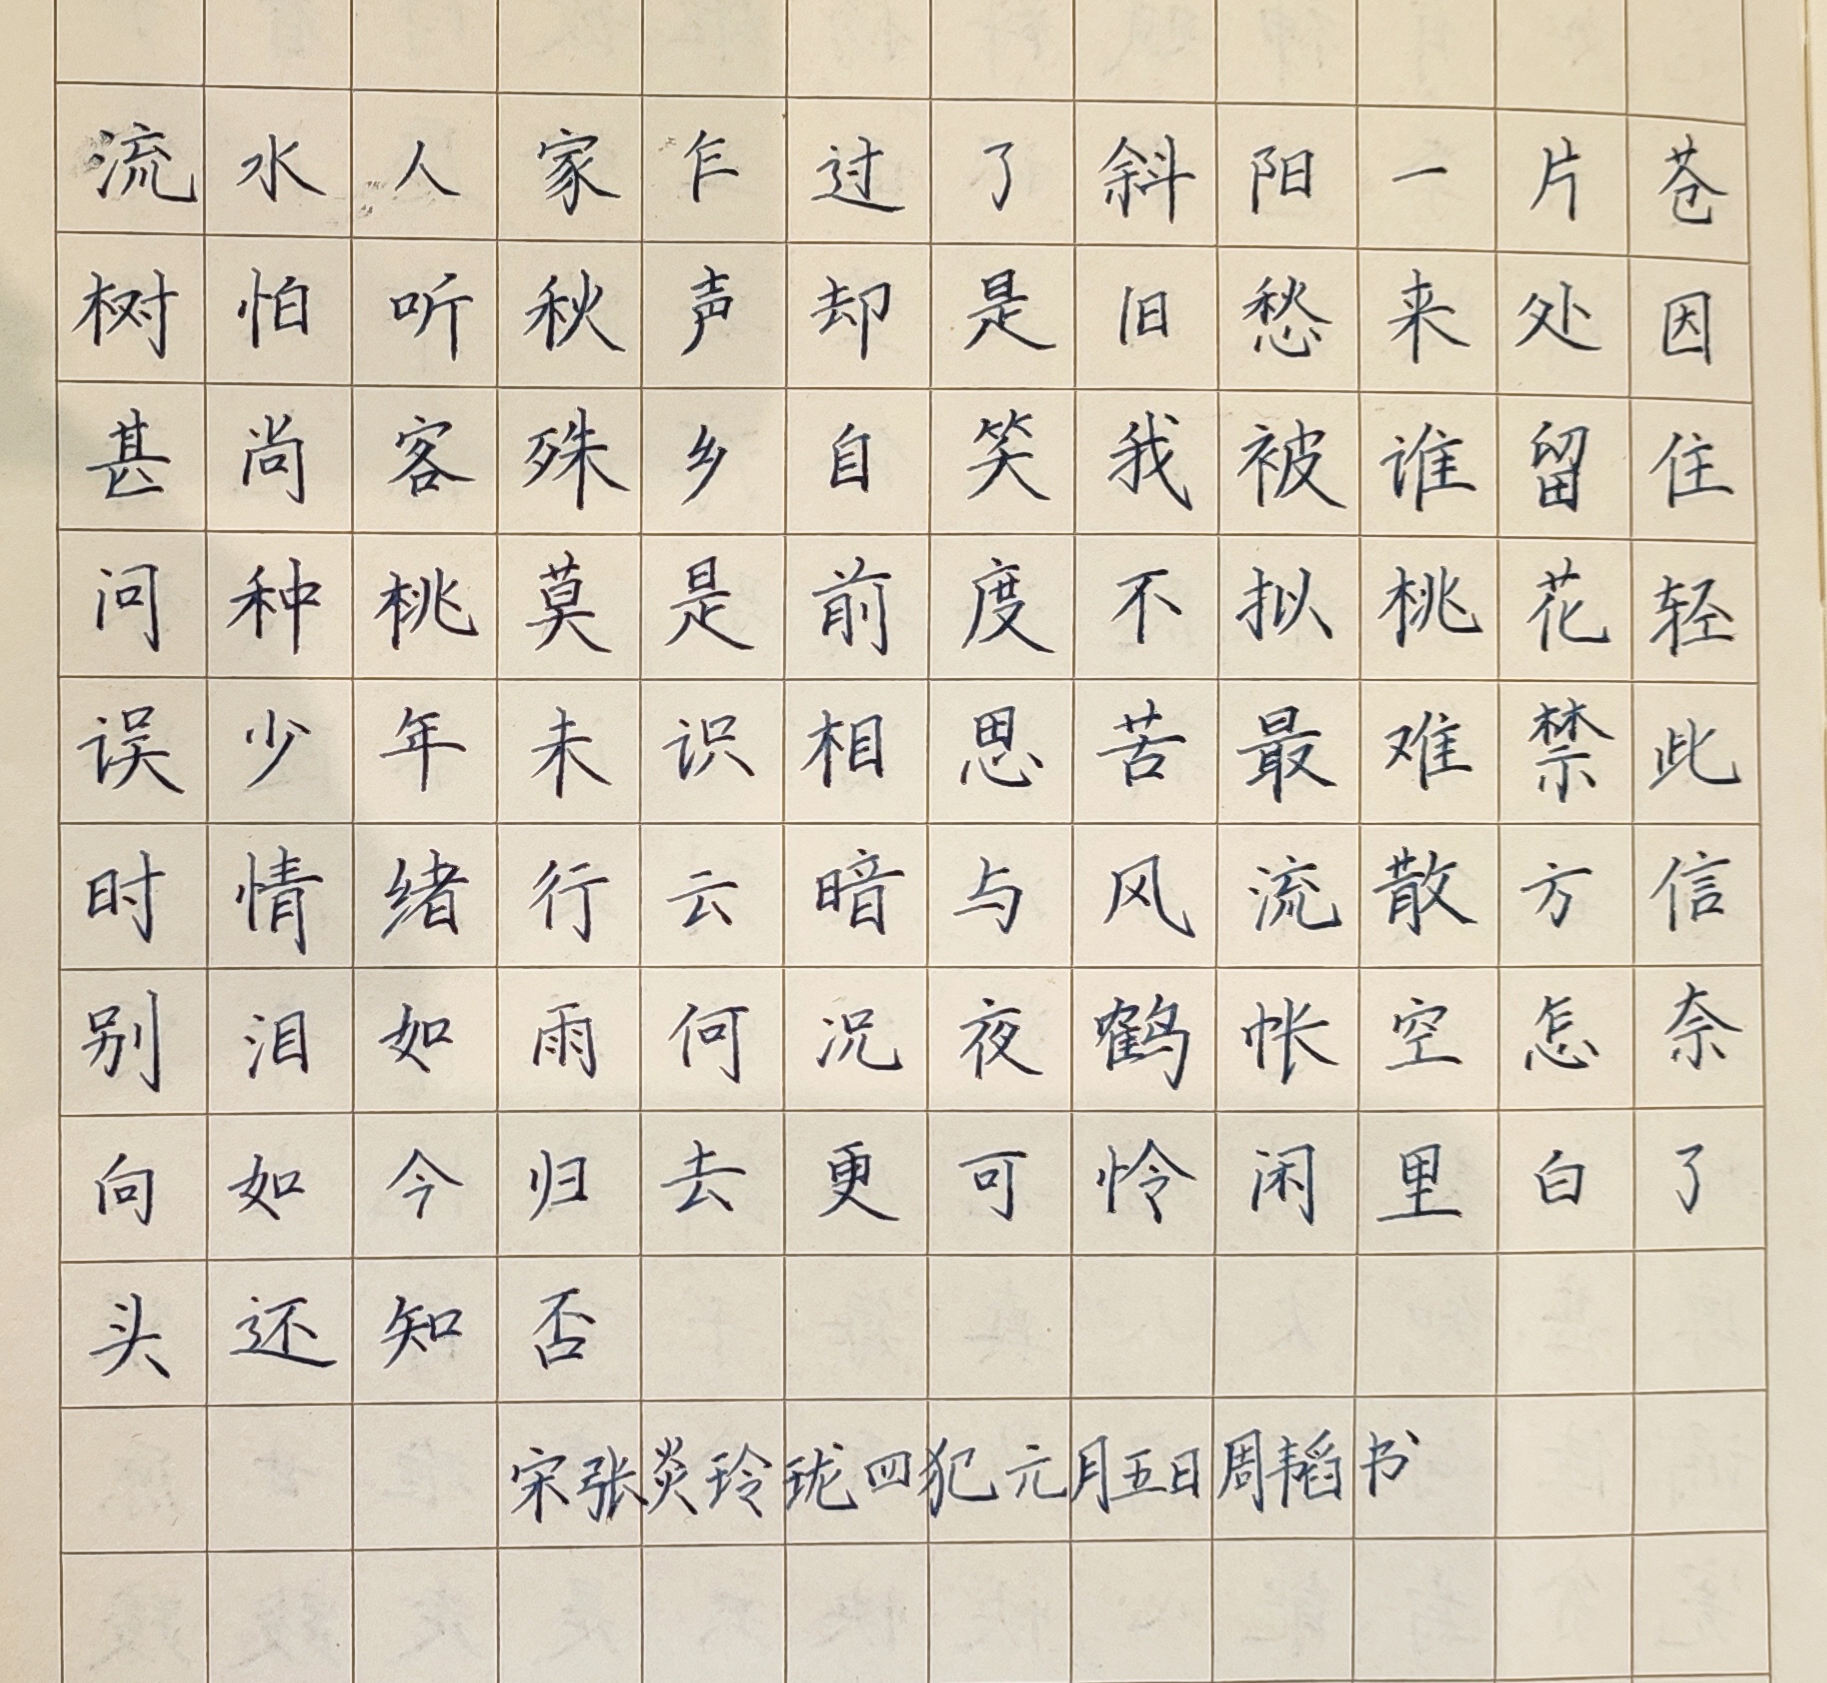 流水人家乍过了斜阳一片苍
树怕听秋声却是旧愁来处因
甚尚客殊乡自笑我被谁留住
问种桃莫是前度不拟桃花轻
误少年未识相思苦最难禁此
时情绪行云暗与风流散方信
别泪如雨何况夜鹤帐空怎奈
向如今归去更可怜闲里白了
头还知否
宋张炎玲珑四犯元月五日周韬书